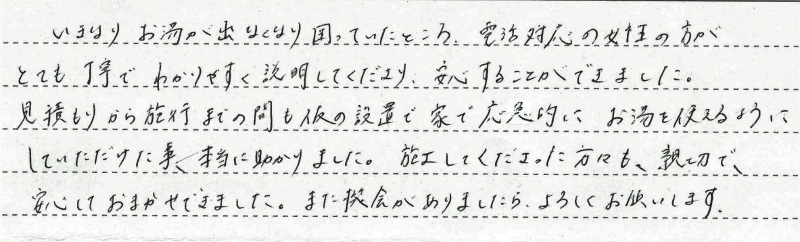 いきなりお湯が出なくなり困っていたところ、電話対応の女性の方が
とても丁寧でわかりやすく説明してくださり、安心することができました。
見積もりから施行までの間も仮の設置で家で応急的にお湯を使えるように
していただけた事、本当に助かりました。施工してくださった方々も、親切で、
安心しておまかせできました。また機会がありましたら、よろしくお願いします。